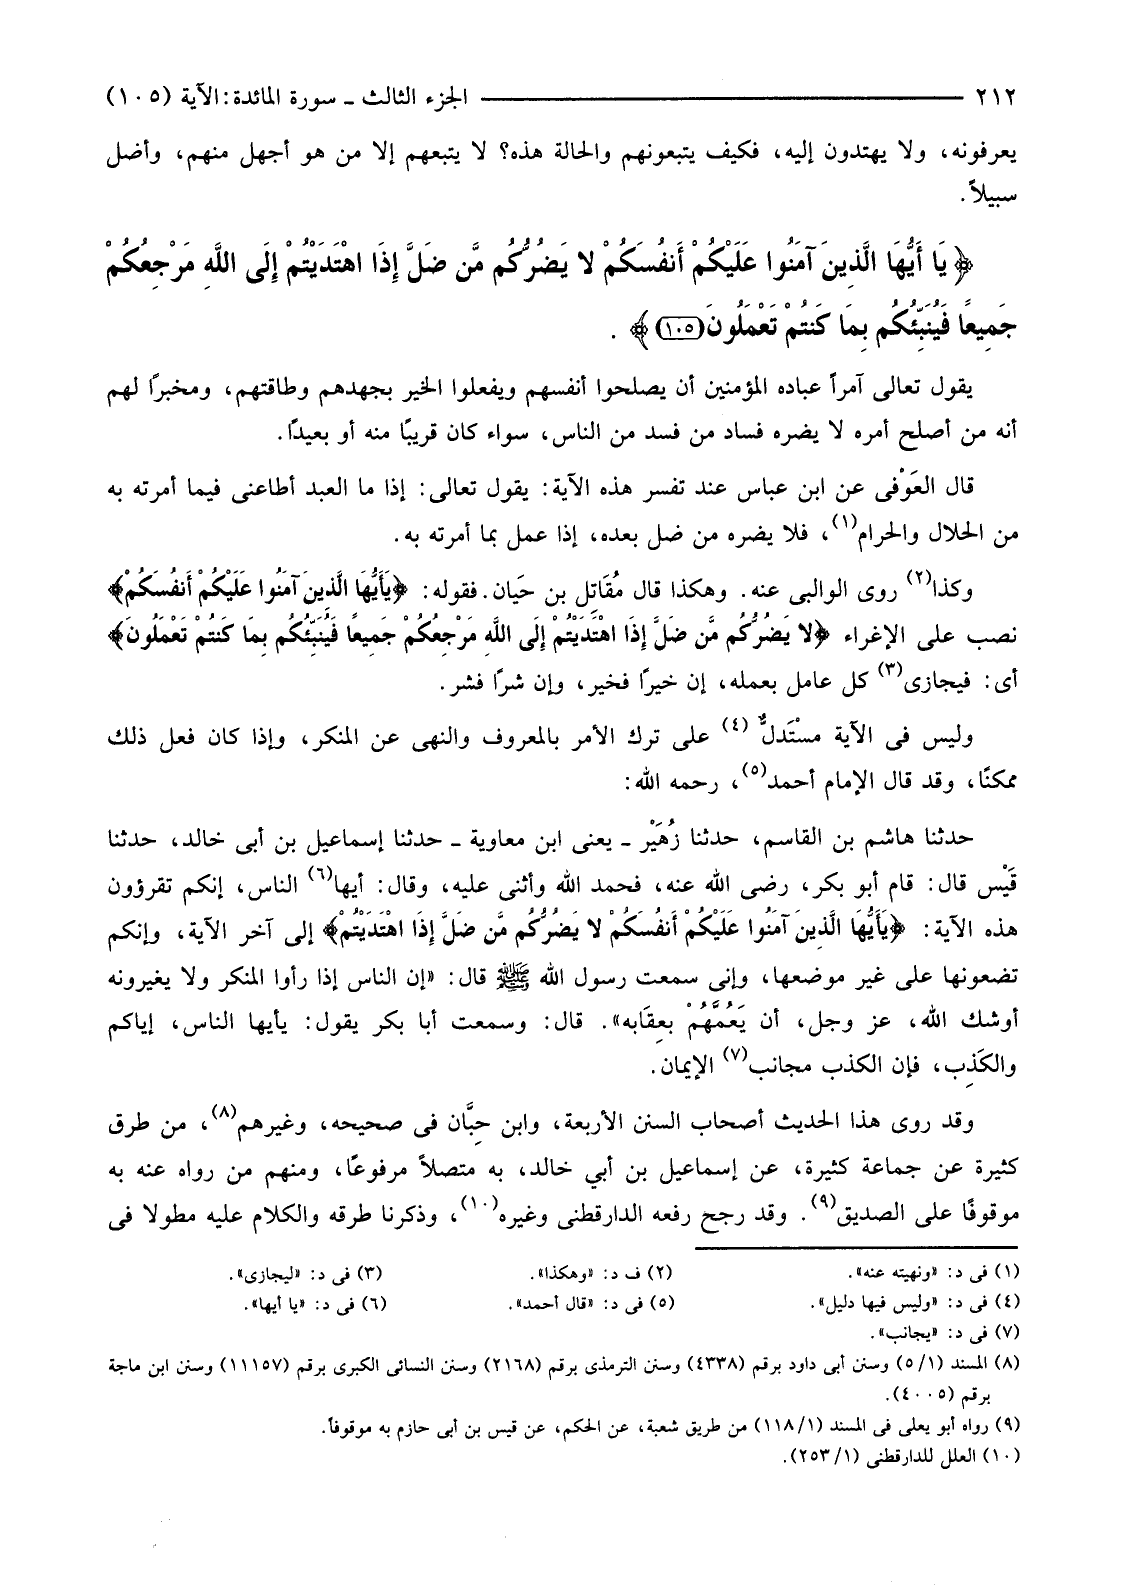 ٢١٢ الجزء الثالث ـ سورة المائدة: الآية (١٠٥)
يعرفونه، ولا يهتدون إليه، فكيف يتبعونهم والحالة هذه؟ لا يتبعهم إلا من هو أجهل منهم، وأضل
سبيلاً.
﴿يَا أَيُّهَا الَّذِينَ آمَنُوا عَلَيْكُمْ أَنفُسَكُمْ لا يَضُرُّكُم مَّن ضَلَّ إِذَا اهْتَدَيْتُمْ إِلَى اللَّهِ مَرْجِعُكُمْ
جَمِيعًا فَيُنَبِّئُكُم بِمَا كُنتُمْ تَعْمَلُونَ (١٠٥)﴾ .
يقول تعالى آمراً عباده المؤمنين أن يصلحوا أنفسهم ويفعلوا الخير بجهدهم وطاقتهم، ومخبرًا لهم
أنه من أصلح أمره لا يضره فساد من فسد من الناس، سواء كان قريبًا منه أو بعيدًا.
قال العَوْفى عن ابن عباس عند تفسر هذه الآية: يقول تعالى: إذا ما العبد أطاعنى فيما أمرته به
من الحلال والحرام(١)، فلا يضره من ضل بعده، إذا عمل بما أمرته به.
وكذا(٢) روى الوالبى عنه. وهكذا قال مُقَاتِل بن حَيان. فقوله: ﴿يَأَيُّهَا الَّذِينَ آمَنُوا عَلَيْكُمْ أَنفُسَكُمْ﴾
نصب على الإغراء ﴿لا يَضُرُّكُم مَّن ضَلَّ إِذَا اهْتَدَيْتُمْ إِلَى اللَّهِ مَرْجِعُكُمْ جَمِيعًا فَيُنَبِّئُكُم بِمَا كُنتُمْ تَعْمَلُونَ﴾
أى: فيجازى(٣) كل عامل بعمله، إن خيرًا فخير، وإن شرًا فشر.
وليس فى الآية مسْتَدلٌ(٤) على ترك الأمر بالمعروف والنهى عن المنكر، وإذا كان فعل ذلك
ممكنًا، وقد قال الإمام أحمد(٥)، رحمه الله:
حدثنا هاشم بن القاسم، حدثنا زُهَيْر ـ يعنى ابن معاوية ـ حدثنا إسماعيل بن أبى خالد، حدثنا
قَيْس قال: قام أبو بكر، رضى الله عنه، فحمد الله وأثنى عليه، وقال: أيها(٦) الناس، إنكم تقرؤون
هذه الآية: ﴿يَأَيُّهَا الَّذِينَ آمَنُوا عَلَيْكُمْ أَنفُسَكُمْ لا يَضُرُّكُم مَّن ضَلَّ إِذَا اهْتَدَيْتُمْ﴾ إلى آخر الآية، وإنكم
تضعونها على غير موضعها، وإنى سمعت رسول الله ﷺ قال: «إن الناس إذا رأوا المنكر ولا يغيرونه
أوشك الله، عز وجل، أن يَعُمَّهُمْ بعِقَابه». قال: وسمعت أبا بكر يقول: يأيها الناس، إياكم
والكَذِب، فإن الكذب مجانب(٧) الإيمان.
وقد روى هذا الحديث أصحاب السنن الأربعة، وابن حِبَّان فى صحيحه، وغيرهم(٨)، من طرق
كثيرة عن جماعة كثيرة، عن إسماعيل بن أبي خالد، به متصلاً مرفوعًا، ومنهم من رواه عنه به
موقوفًا على الصديق(٩). وقد رجح رفعه الدارقطنى وغيره(١٠)، وذكرنا طرقه والكلام عليه مطولا فى
(١) فى د: «ونهيته عنه». (٢) ف د: «وهكذا». (٣) فى د: «ليجازى».
(٤) فى د: «وليس فيها دليل». (٥) فى د: «قال أحمد». (٦) فى د: «يا أيها».
(٧) فى د: «يجانب».
(٨) المسند (٥/١) وسنن أبى داود برقم (٤٣٣٨) وسنن الترمذى برقم (٢١٦٨) وسنن النسائى الكبرى برقم (١١١٥٧) وسنن ابن ماجة
برقم (٤٠٠٥).
(٩) رواه أبو يعلى فى المسند (١١٨/١) من طريق شعبة، عن الحكم، عن قيس بن أبى حازم به موقوفاً.
(١٠) العلل للدارقطنى (٢٥٣/١).